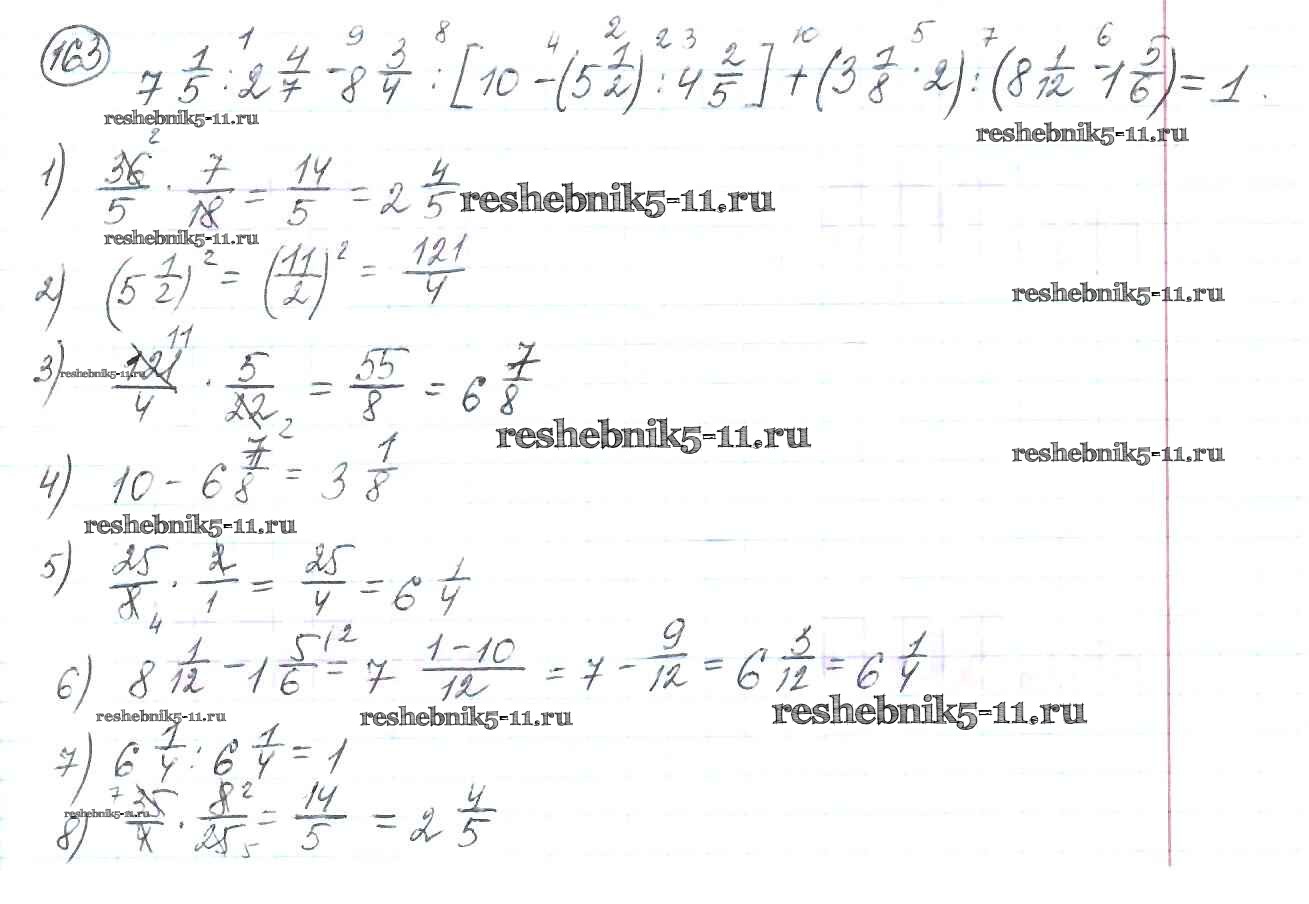 163
1 9 8 4 2 3 10 5 7 6
7 1/5 : 2 4/7 - 8 3/4 : [10 - (5 1/2)² : 4 2/5] + (3 1/8 · 2) : (8 1/12 - 1 5/6) = 1.
reshebnik5-11.ru
reshebnik5-11.ru
1) 36/5 · 7/18 = 14/5 = 2 4/5
reshebnik5-11.ru
reshebnik5-11.ru
2) (5 1/2)² = (11/2)² = 121/4
reshebnik5-11.ru
3) 121/4 · 5/22 = 55/8 = 6 7/8
reshebnik5-11.ru
reshebnik5-11.ru
reshebnik5-11.ru
4) 10 - 6 7/8 = 3 1/8
reshebnik5-11.ru
5) 25/8 · 2/1 = 25/4 = 6 1/4
6) 8 1/12 - 1 5/6 = 7 (1-10)/12 = 7 - 9/12 = 6 3/12 = 6 1/4
reshebnik5-11.ru
reshebnik5-11.ru
reshebnik5-11.ru
7) 6 1/4 : 6 1/4 = 1
reshebnik5-11.ru
8) 35/4 · 8/25 = 14/5 = 2 4/5